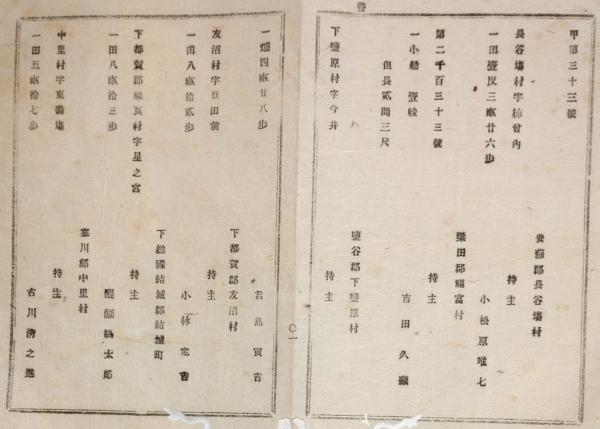 甲第三十三號
安蘇郡長谷塲村
長谷塲村字柿曾内
持主
一田壹反三畝廿六歩
小松原唯七
第二千百三十三號
梁田郡福富村
一小船 壹艘
持主
但長貳間三尺
吉田久藏
下鹽原村字今井
鹽谷郡下鹽原村
持主
〇一
一畑四畝廿八歩
君島寅吉
友沼村字新田前
下都賀郡友沼村
一田八畝拾貳歩
持主
小林定吉
下都賀郡福良村字星之宮
下總國結城郡結城町
一田八畝拾三歩
持主
醍醐鎗太郎
中里村字東溜塲
寒川郡中里村
一田五畝拾七歩
持主
古川清之進